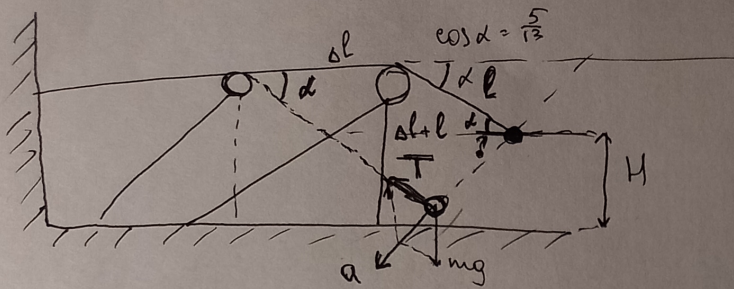 Δl
cosα = 5/13
α
α
l
Δl+l
α
T
H
a
mg